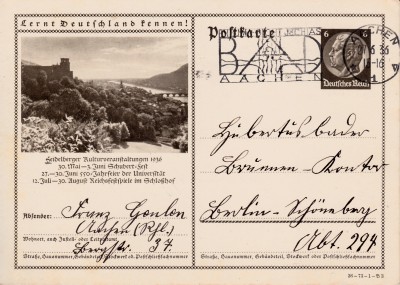 Lernt Deutschland kennen!
Postkarte
BAD
AACHEN
AACHEN
6 6
Deutsches Reich
Heidelberger Kulturveranstaltungen 1936
30. Mai – 3. Juni Schubert-Fest
27. – 30. Juni 550-Jahrfeier der Universität
12. Juli – 30. August Reichsfestspiele im Schloßhof
Hubertusbader
Brunnen-Kontor
Berlin-Schöneberg
Abt. 294
Absender: Franz
Aachen (Rhl.)
Wohnort, auch Zustell- oder Leitpostamt
Bergstr. 37.
Straße, Hausnummer, Gebäudeteil, Stockwerk od. Postschließfachnummer
Straße, Hausnummer, Gebäudeteil, Stockwerk oder Postschließfachnummer